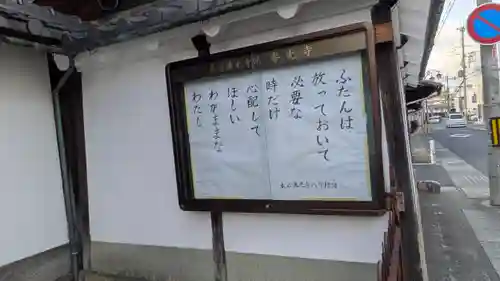 ふだんは
放っておいて
必要な
時だけ
心配して
ほしい
わがままな
わたし